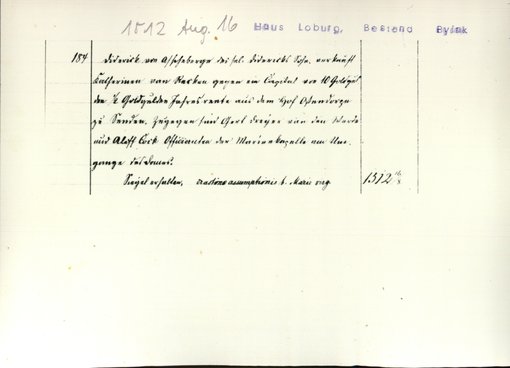 1512 Aug. 16 Haus Loburg, Bestand Byink
184 Diderick von Asscheberge des sel. Didericks Sohn verkauft
Katherinen van Recken gegen ein Capital von 10 Goldgul
den ½ Goldgulden Jahresrente aus dem Hof Ossendorpe
zu Senden. Zugegen sind Gert Dreyer van den
und Aloff Cock Officianten der Marienkapelle am Um-
gange des Domes.
Siegel erhalten, crastino assumptionis b. Marie virg. 1512 16/8